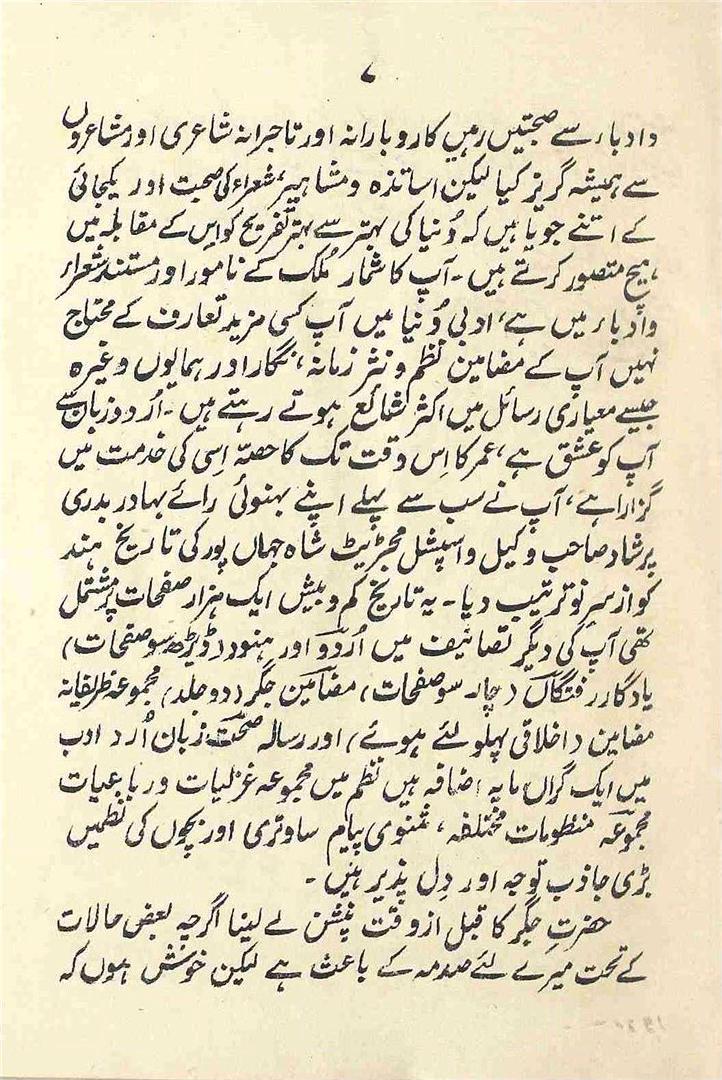 ۷
وادباء سے صحبتیں رہیں کاروبارانہ اور تاجرانہ شاعری اور مشاعروں
سے ہمیشہ گریز کیا لیکن اساتذہ و مشاہیر، شعراء کی صحبت اور یکجائی
کے اتنے جویا ہیں کہ دُنیا کی بہتر سے بہتر تفریح کو اس کے مقابلہ میں
ہیچ متصور کرتے ہیں۔ آپ کا شمار مُلک کے نامور اور مستند شعراء
وادباء میں ہے، ادبی دُنیا میں آپ کسی مزید تعارف کے محتاج
نہیں آپ کے مضامین نظم و نثر زمانہ، نگار اور ہمایوں وغیرہ
جیسے معیاری رسائل میں اکثر شائع ہوتے رہتے ہیں۔ اُردو زبان سے
آپ کو عشق ہے، عمر کا اِس وقت تک کا حصّہ اِسی کی خدمت میں
گزارا ہے، آپ نے سب سے پہلے اپنے بہنوئی رائے بہادر بدری
پرشاد صاحب وکیل واسپشل مجسٹریٹ شاہ جہاں پور کی تاریخ ہند
کو از سرِ نو ترتیب دیا۔ یہ تاریخ کم و بیش ایک ہزار صفحات پر مشتمل
تھی آپ کی دیگر تصانیف میں اُردو اور ہنود (ڈیڑھ سو صفحات)
یادگار رفتگاں (چار سو صفحات) مضامین جگر (دو جلد) مجموعہ ظریفانہ
مضامین (اخلاقی پہلو لئے ہوئے) اور رسالہ صحت زبان اُرد ادب
میں ایک گراں مایہ اضافہ ہیں نظم میں مجموعہ غزلیات و رباعیات
مجموعہ منظومات مختلفہ، مثنوی پیام ساوتری اور بچوں کی نظمیں
بڑی جاذب توجہ اور دِل پذیر ہیں۔
حضرتِ جگر کا قبل از وقت پنشن لے لینا اگرچہ بعض حالات
کے تحت میرے لئے صدمہ کے باعث ہے لیکن خوش ہوں کہ